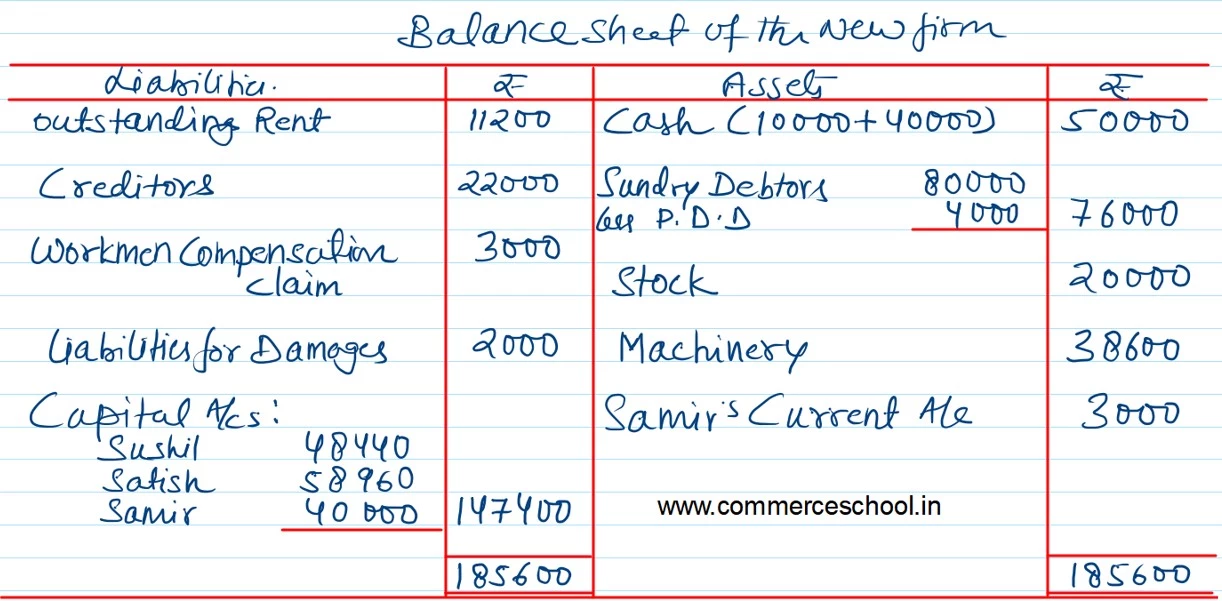 Balance Sheet of the New firm
Liabilities. ₹ Assets ₹
Outstanding Rent 11200 Cash (10000+40000) 50000
Creditors 22000 Sundry Debtors 80000
less P.D.D 4000 76000
Workmen Compensation claim 3000
Stock 20000
Liabilities for Damages 2000 Machinery 38600
Capital A/cs: Samir's Current A/c 3000
Sushil 48440
Satish 58960
Samir 40000 147400 www.commerceschool.in
185600 185600